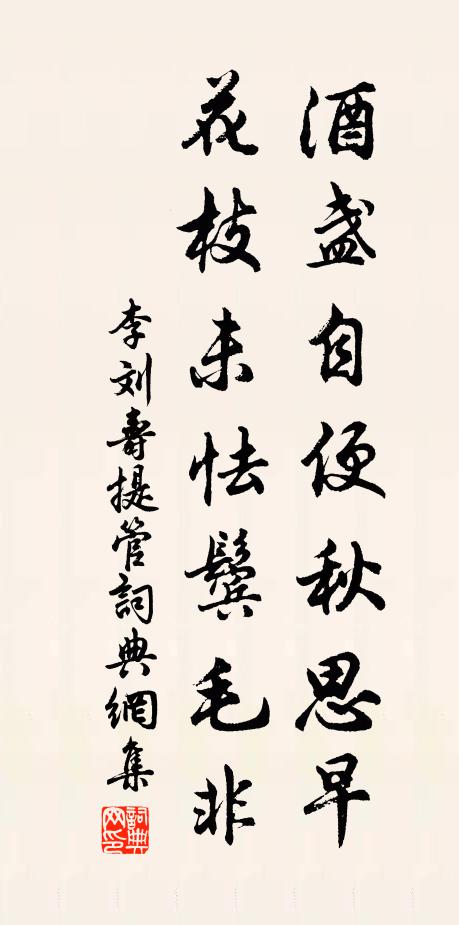 酒盏自便秋思早
花枝未怯鬓毛非
李刘壽提管詞典網集
詞典网印